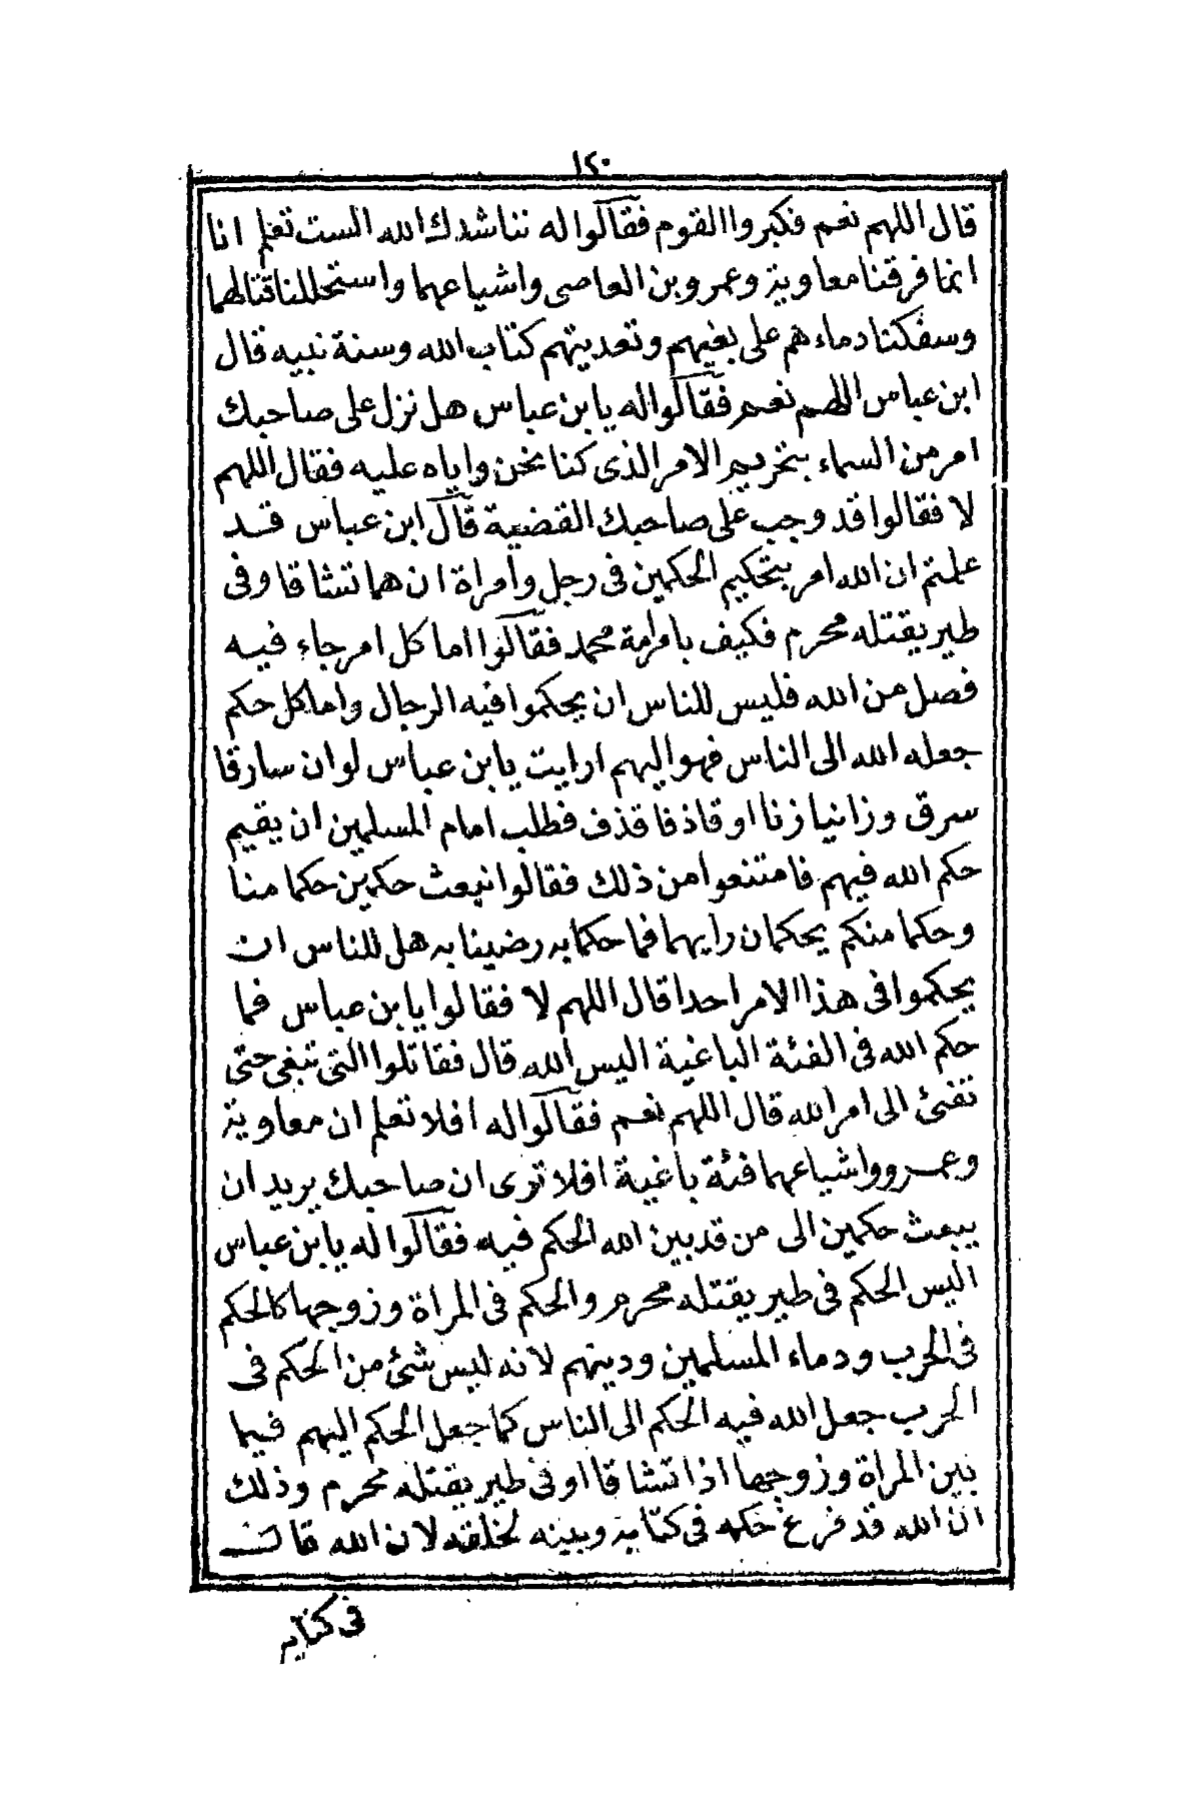 ١٢٠
قال اللهم نعم فكبروا القوم فقالوا له نناشدك الله الست تعلم انا
انما فرقنا معاوية وعمرو بن العاصى واشياعهما واستحللنا قتالهما
وسفكنا دماءهم على بغيهم وتعديتهم كتاب الله وسنة نبيه قال
ابن عباس اللهم نعم فقالوا له يا بن عباس هل نزل على صاحبك
امر من السماء بتحريم الامر الذى كنا نحن واياه عليه فقال اللهم
لا فقالوا قد وجب على صاحبك القضية قال ابن عباس قد
علمتم ان الله امر بتحكيم الحكمين فى رجل وامراة ان هما تشاقا وفى
طير يقتله محرم فكيف بامر امة محمد فقالوا اما كل امر جاء فيه
فصل من الله فليس للناس ان يحكموا فيه الرجال واما كل حكم
جعله الله الى الناس فهو اليهم ارايت يا بن عباس لو ان سارقا
سرق وزانيا زنا او قاذفا قذف فطلب امام المسلمين ان يقيم
حكم الله فيهم فامتنعوا من ذلك فقالوا نبعث حكمين حكما منا
وحكما منكم يحكمان رايهما فما حكما به رضينا به هل للناس ان
يحكموا فى هذا الامر احدا قال اللهم لا فقالوا يا بن عباس فما
حكم الله فى الفئة الباغية اليس الله قال فقاتلوا التى تبغى حتى
تفئ الى امر الله قال اللهم نعم فقالوا له افلا تعلم ان معاوية
وعمرو واشياعهما فئة باغية افلا ترى ان صاحبك يريد ان
يبعث حكمين الى من قد بين الله الحكم فيه فقالوا له يا بن عباس
اليس الحكم فى طير يقتله محرم والحكم فى المراة وزوجها كالحكم
فى الحرب ودماء المسلمين وديتهم لانه ليس شئ من الحكم فى
الحرب جعل الله فيه الحكم الى الناس كما جعل الحكم اليهم فيما
بين المراة وزوجها اذا تشاقا او فى طير يقتله محرم وذلك
ان الله قد فرغ حكمه فى كتابه وبينه لخلقه لان الله قال
فى كتابه